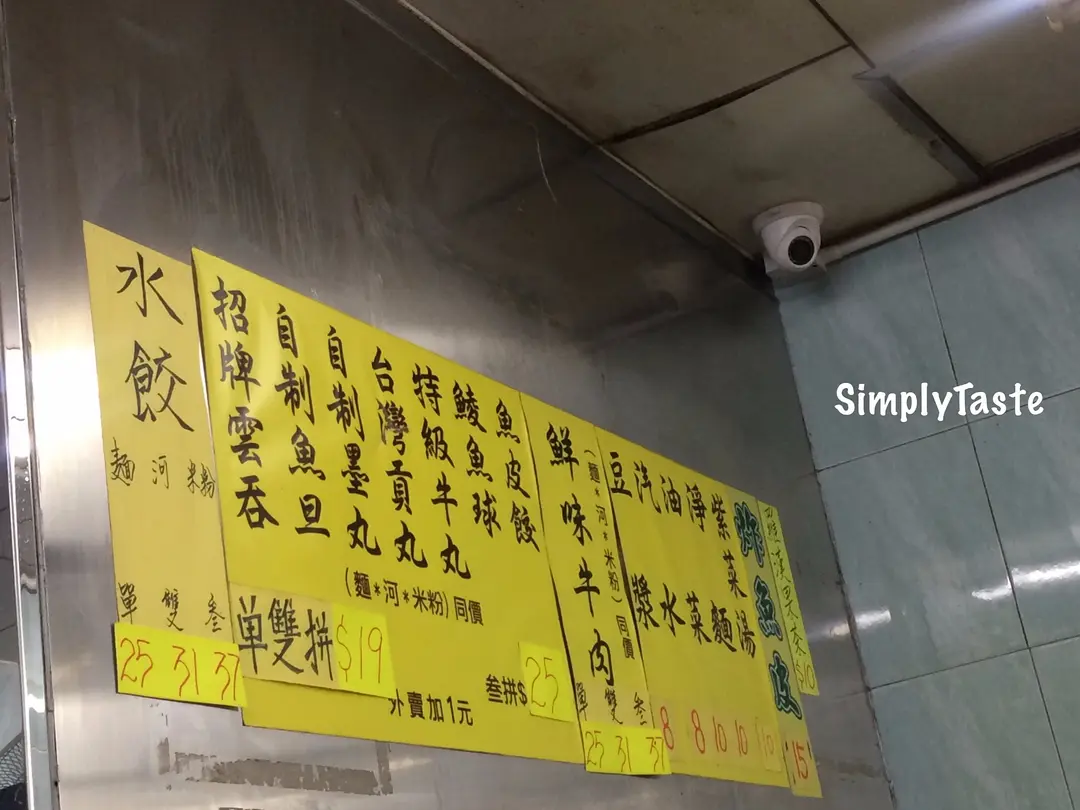 水餃
麵 河 米粉
單 雙 叁
25 31 37
招牌雲吞
自制魚旦
自制墨丸
台灣貢丸
特級牛丸
鯪魚球
魚皮餃
(麵*河*米粉)同價
单雙拼 $19
叁拼$25
外賣加1元
鮮味牛肉
(麵*河*米粉)同價
單 雙 叁
25 31 37
豆漿 8
汽水 8
油菜 10
淨麵 10
紫菜湯 10
炸魚皮 15
羅漢果茶 $10
SimplyTaste